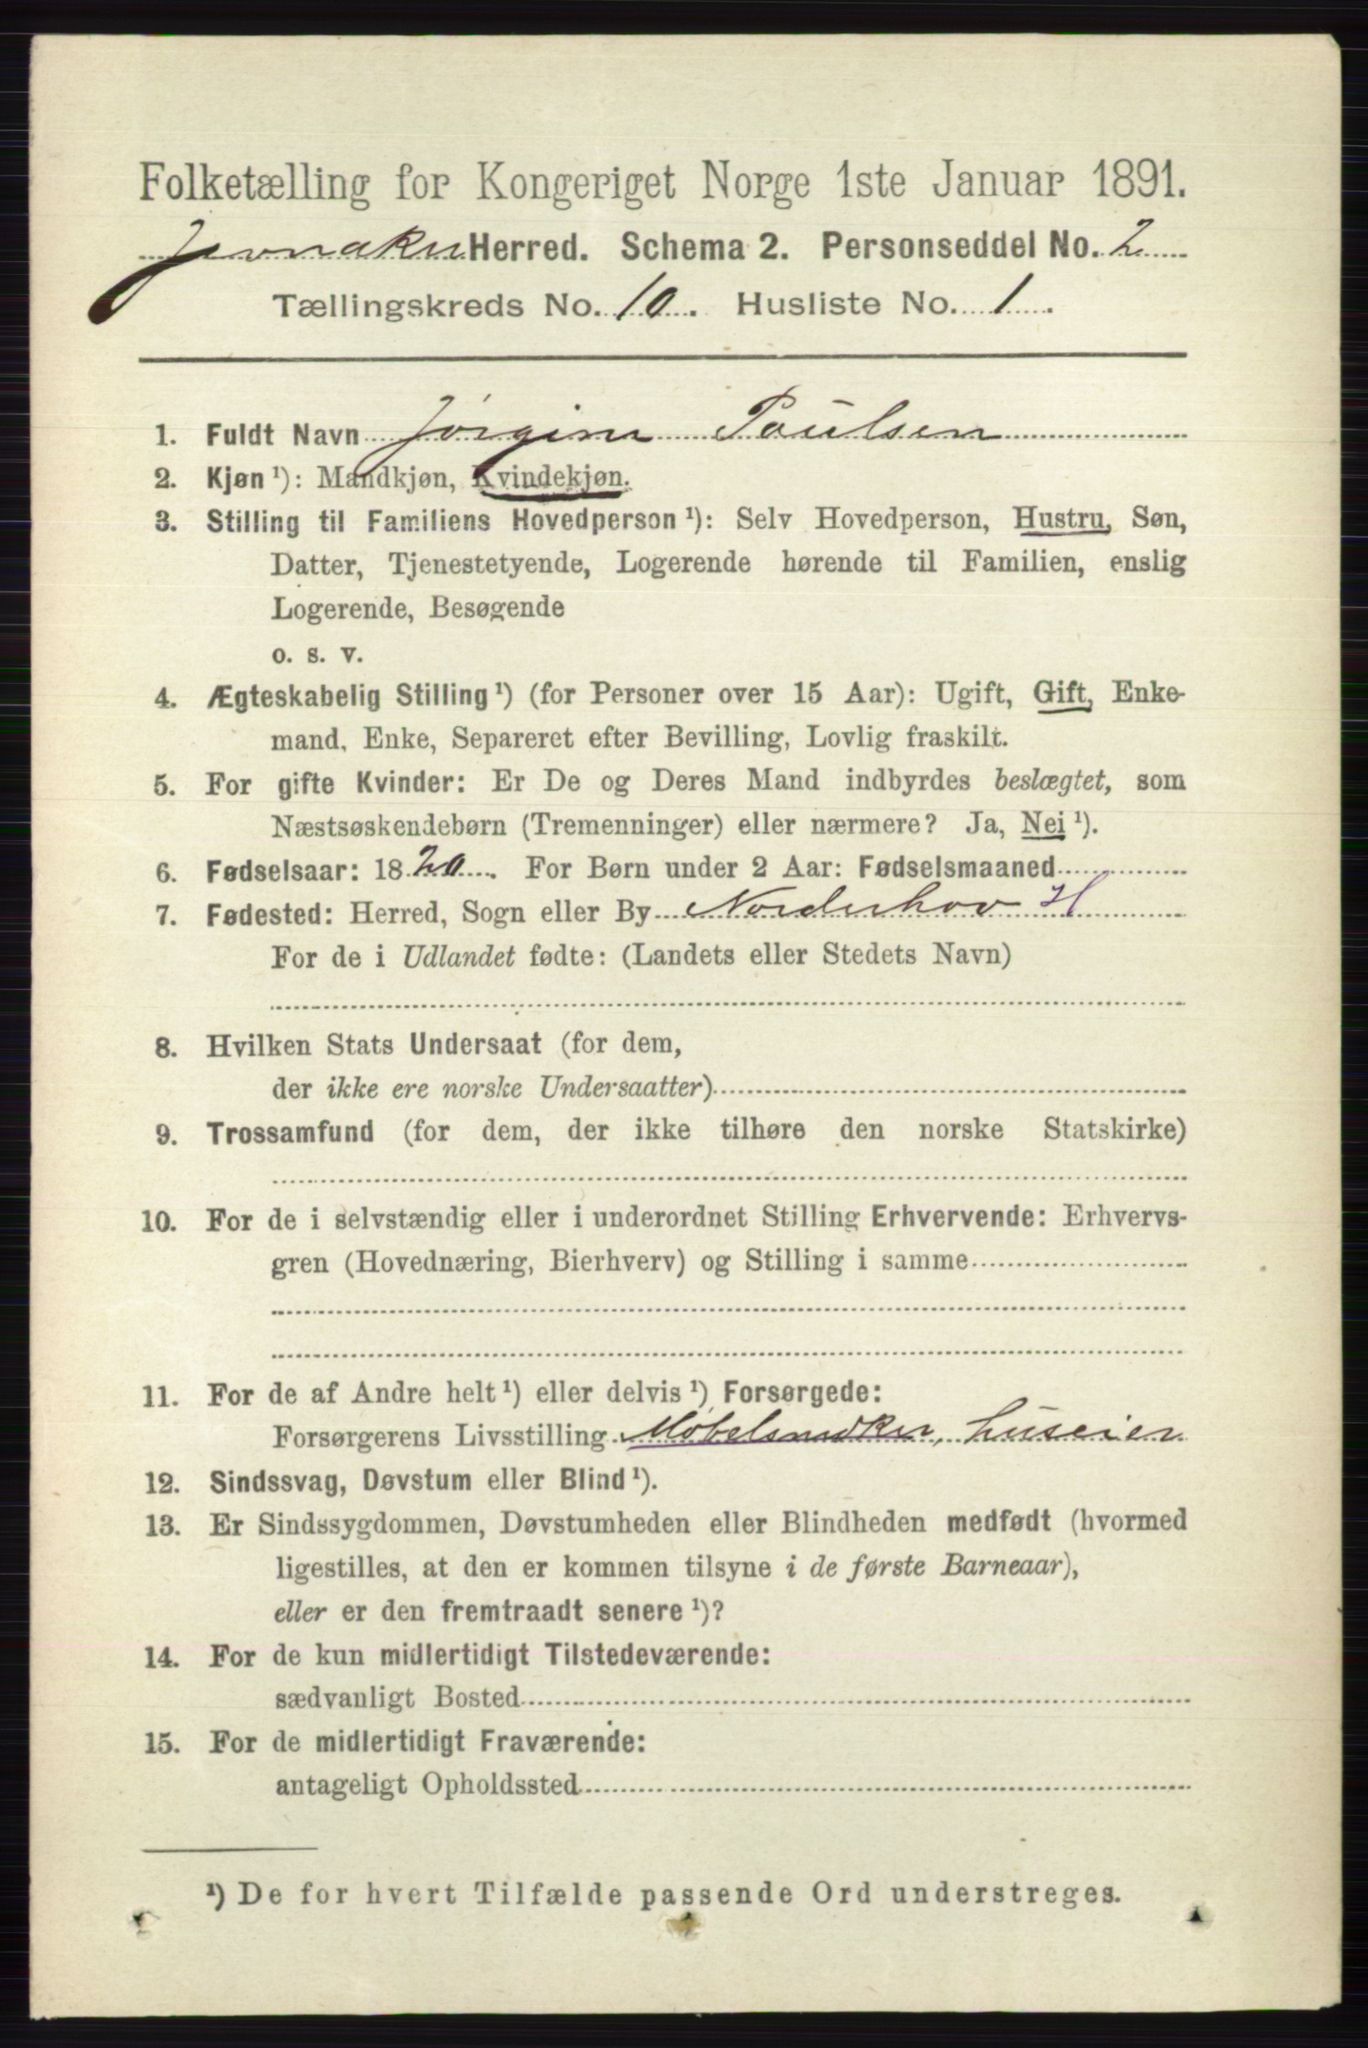 Folketælling for Kongeriget Norge 1ste Januar 1891.
Jevnaker Herred. Schema 2. Personseddel No. 2
Tællingskreds No. 10. Husliste No. 1.
1. Fuldt Navn Jørgine Paulsen
2. Kjøn¹): Mandkjøn, Kvindekjøn.
3. Stilling til Familiens Hovedperson¹): Selv Hovedperson, Hustru, Søn,
Datter, Tjenestetyende, Logerende hørende til Familien, enslig
Logerende, Besøgende
o. s. v.
4. Ægteskabelig Stilling¹) (for Personer over 15 Aar): Ugift, Gift, Enke-
mand, Enke, Separeret efter Bevilling, Lovlig fraskilt.
5. For gifte Kvinder: Er De og Deres Mand indbyrdes beslægtet, som
Næstsøskendebørn (Tremenninger) eller nærmere? Ja, Nei¹).
6. Fødselsaar: 1820. For Børn under 2 Aar: Fødselsmaaned
7. Fødested: Herred, Sogn eller By Norderhov H
For de i Udlandet fødte: (Landets eller Stedets Navn)
8. Hvilken Stats Undersaat (for dem,
der ikke ere norske Undersaatter)
9. Trossamfund (for dem, der ikke tilhøre den norske Statskirke)
10. For de i selvstændig eller i underordnet Stilling Erhvervende: Erhvervs-
gren (Hovednæring, Bierhverv) og Stilling i samme
11. For de af Andre helt¹) eller delvis¹) Forsørgede:
Forsørgerens Livsstilling Møbelsnedker, huseier
12. Sindssvag, Døvstum eller Blind¹).
13. Er Sindssygdommen, Døvstumheden eller Blindheden medfødt (hvormed
ligestilles, at den er kommen tilsyne i de første Barneaar),
eller er den fremtraadt senere¹)?
14. For de kun midlertidigt Tilstedeværende:
sædvanligt Bosted
15. For de midlertidigt Fraværende:
antageligt Opholdssted
¹) De for hvert Tilfælde passende Ord understreges.